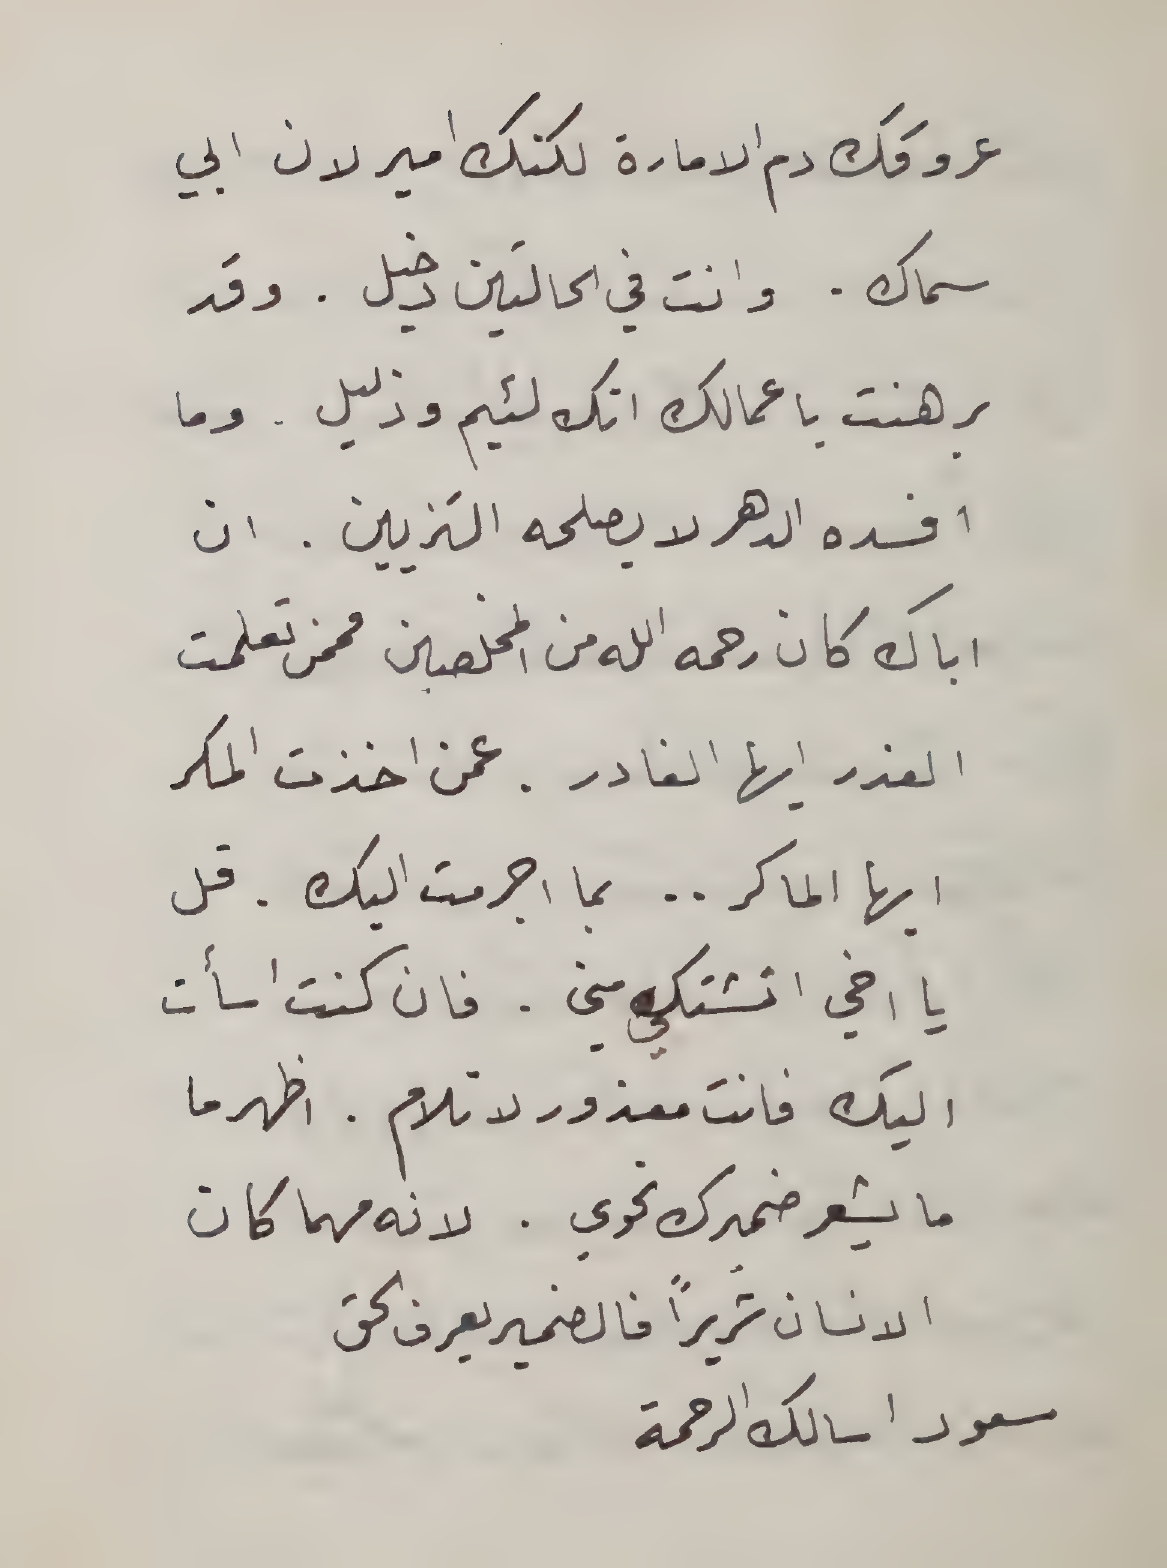 عروقك دم الامارة لكنك امير لان ابي
سماك . وانت في الحالتين دخيل . وقد
برهنت باعمالك انك لئيم وذليل . وما
افسده الدهر لا يصلحه التزيين . ان
اباك كان رحمه الله من المخلصين فممن تعلمت
الغدر ايها الغادر . عمن اخذت المكر
ايها الماكر .. بما اجرمت اليك . قل
يا اخي اتشتكي مني . فان كنت اسأت
اليك فانت معذور لا تلام . اظهر ما
ما يشعر ضميرك نحوي . لانه مهما كان
الانسان شريراً فالضمير يعرف الحق
مسعود اسالك الرحمة